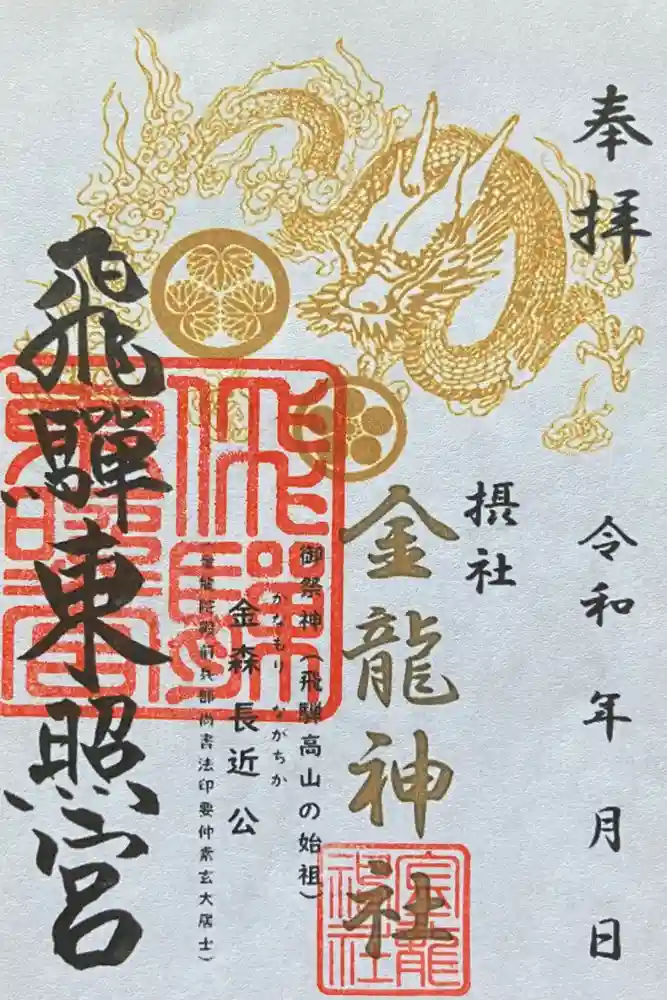 奉拝
令和 年 月 日
摂社
金龍神社
御祭神（飛騨高山の始祖）
かなもり ながちか
金森長近公
龍院殿前兵部尚書法印要仲素玄大居士）
飛驒東照宮
飛驒
東照宮
金龍
神社